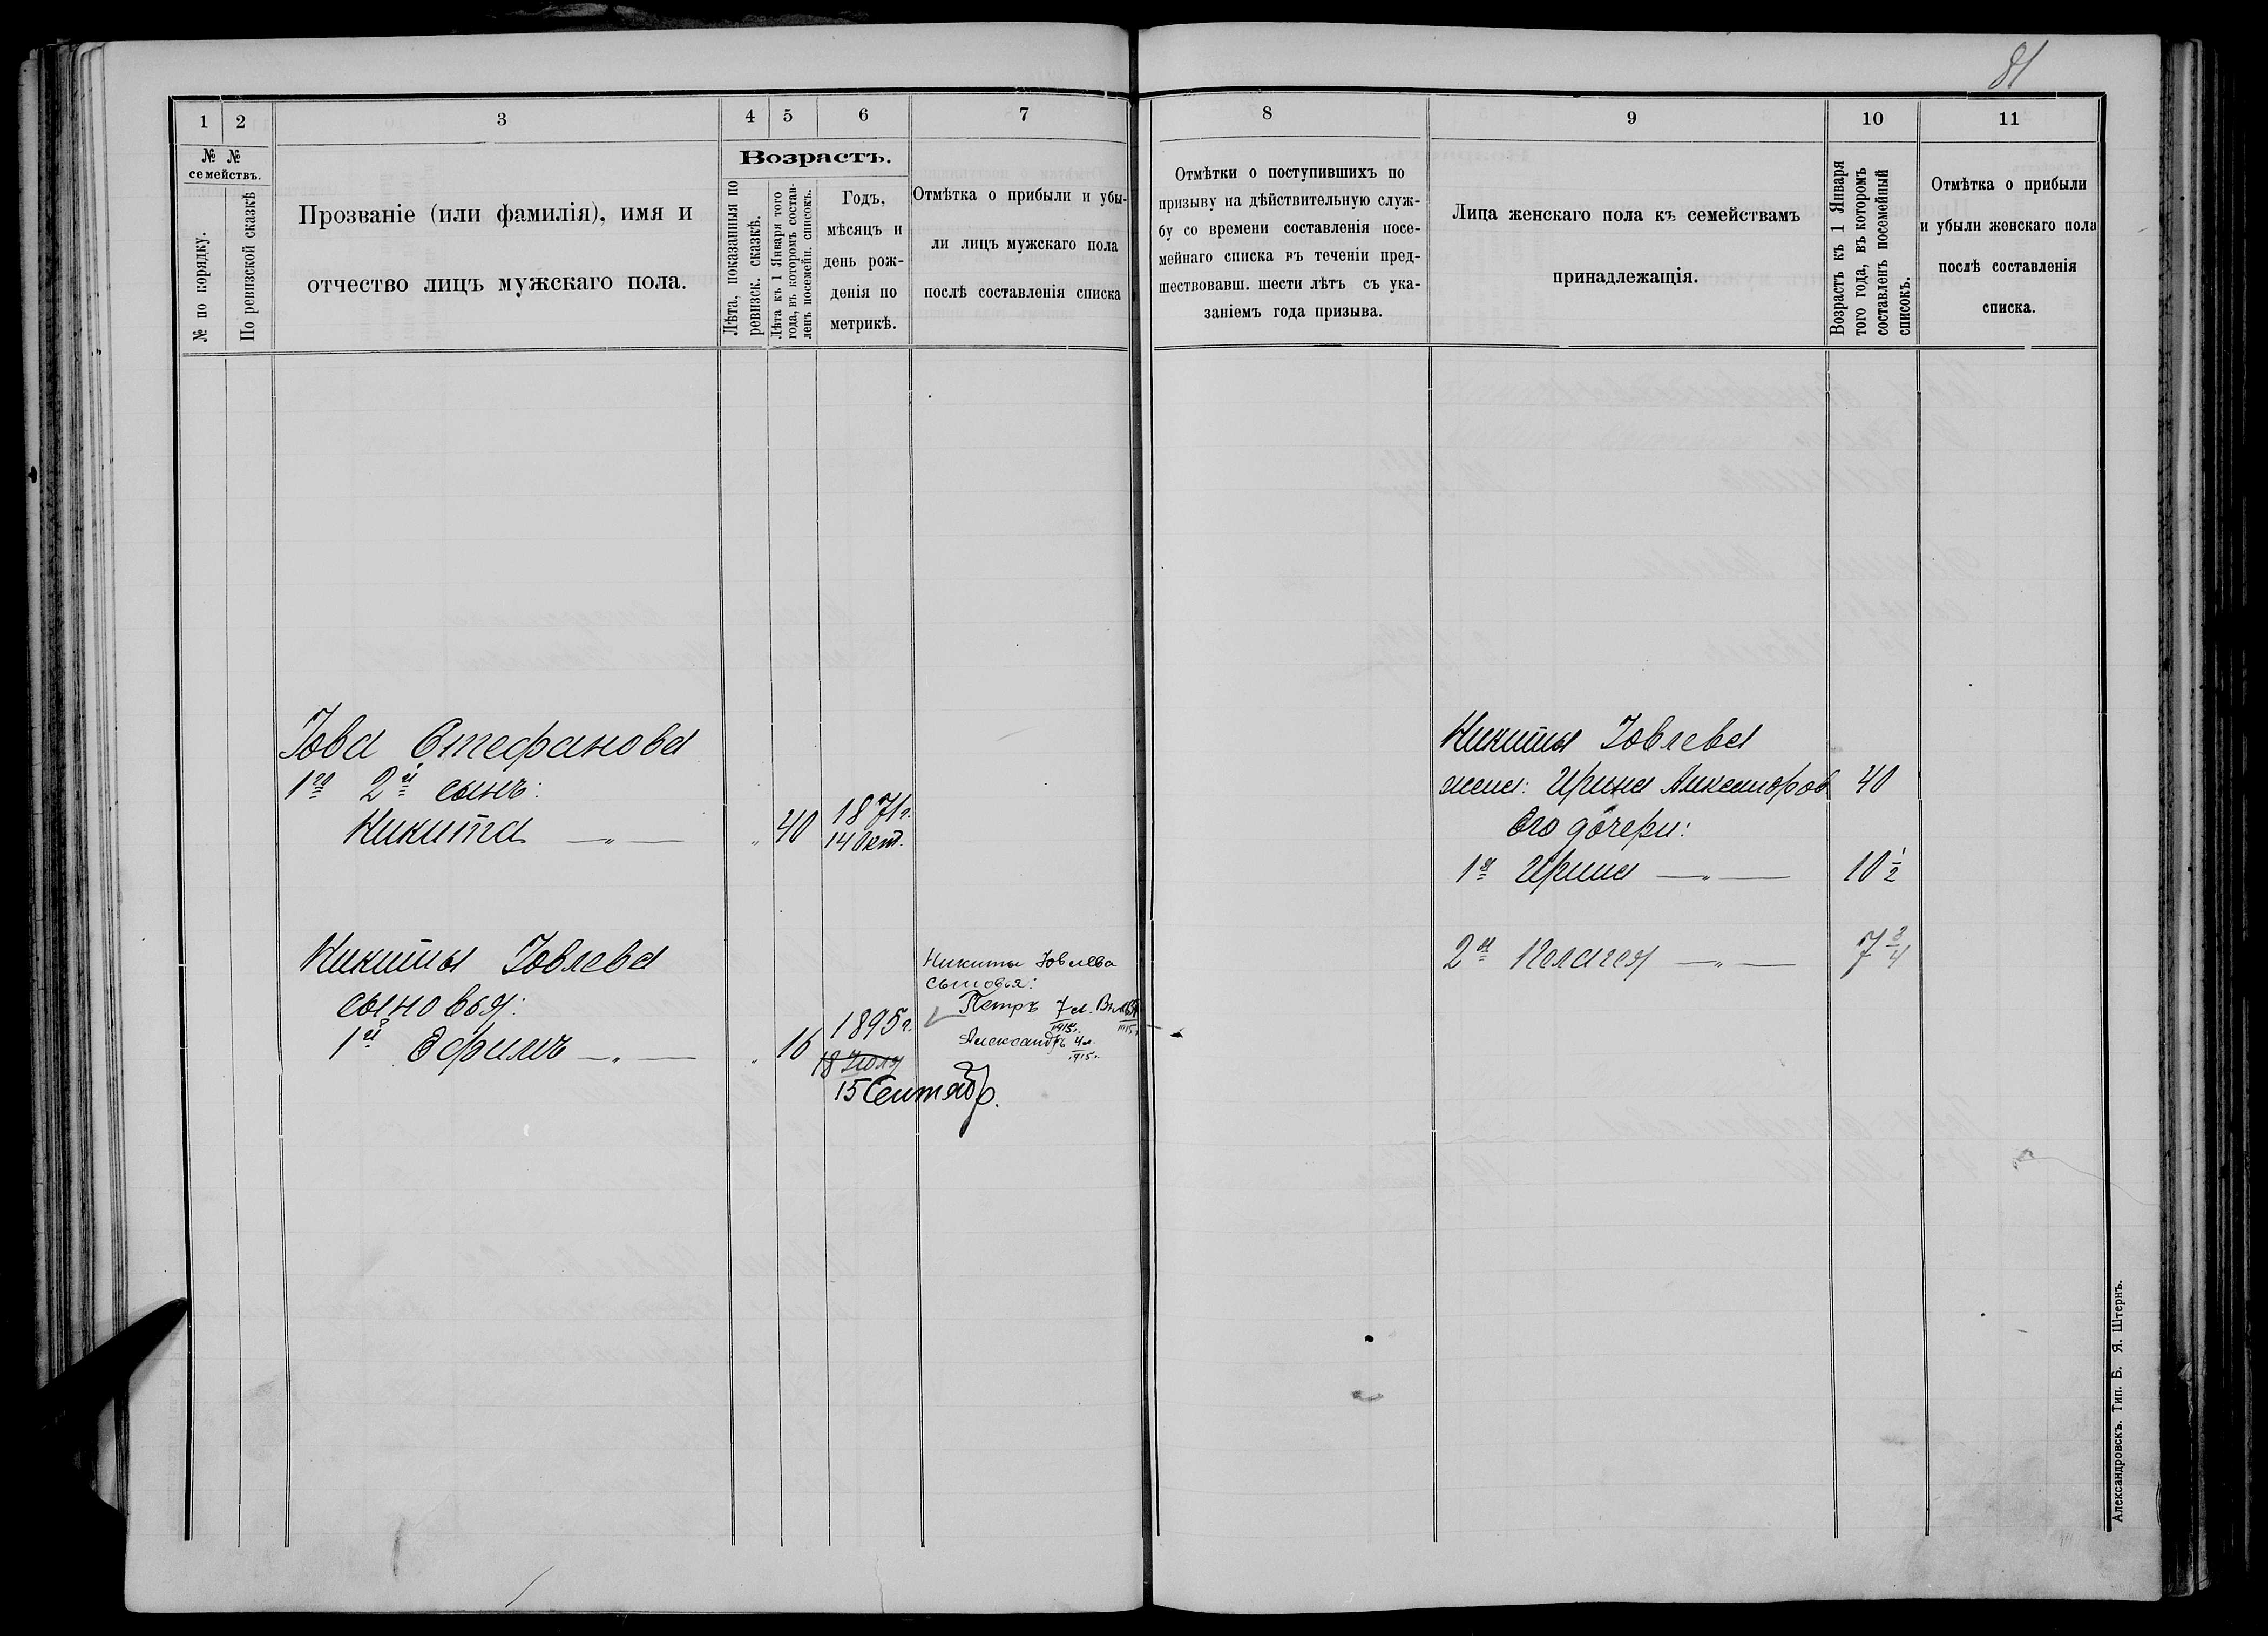 81
1 2 3 4 5 6 7
№ № семействъ.
№ по порядку.
По ревизской сказкѣ
Прозваніе (или фамилія), имя и
отчество лицъ мужскаго пола.
Возрастъ.
Лѣта, показанныя по
ревизск. сказкѣ.
Лѣта къ 1 Января того
года, въ которомъ состав-
ленъ посемейн. списокъ.
Годъ,
мѣсяцъ и
день рож-
денія по
метрикѣ.
Отмѣтка о прибыли и убы-
ли лицъ мужскаго пола
послѣ составленія списка
Іова Стефанова
1го 2й сынъ:
Никита — „ — „ 40 1871г.
14 Окт.
Никиты Іовлева
сыновья:
1й Ефимъ — „ — „ 16 1895г.
18 Іюля
15 Сентябр.
Никиты Іовлева
сыновья:
Петръ 7 л.
1915г.
Александръ 4 л.
1915г.
8 9 10 11
Отмѣтки о поступившихъ по
призыву на дѣйствительную служ-
бу со времени составленія посе-
мейнаго списка въ теченіи пред-
шествовавш. шести лѣтъ съ ука-
заніемъ года призыва.
Лица женскаго пола къ семействамъ
принадлежащія.
Возрастъ къ 1 Января
того года, въ которомъ
составленъ посемейный
списокъ.
Отмѣтка о прибыли
и убыли женскаго пола
послѣ составленія
списка.
Никиты Іовлева
жена: Ирина Александров 40
Его дочери:
1я Ирина — „ — 10 1/2
2я Пелагея — „ — 7 3/4
Александровскъ. Тип. Б. Я. Штернъ.